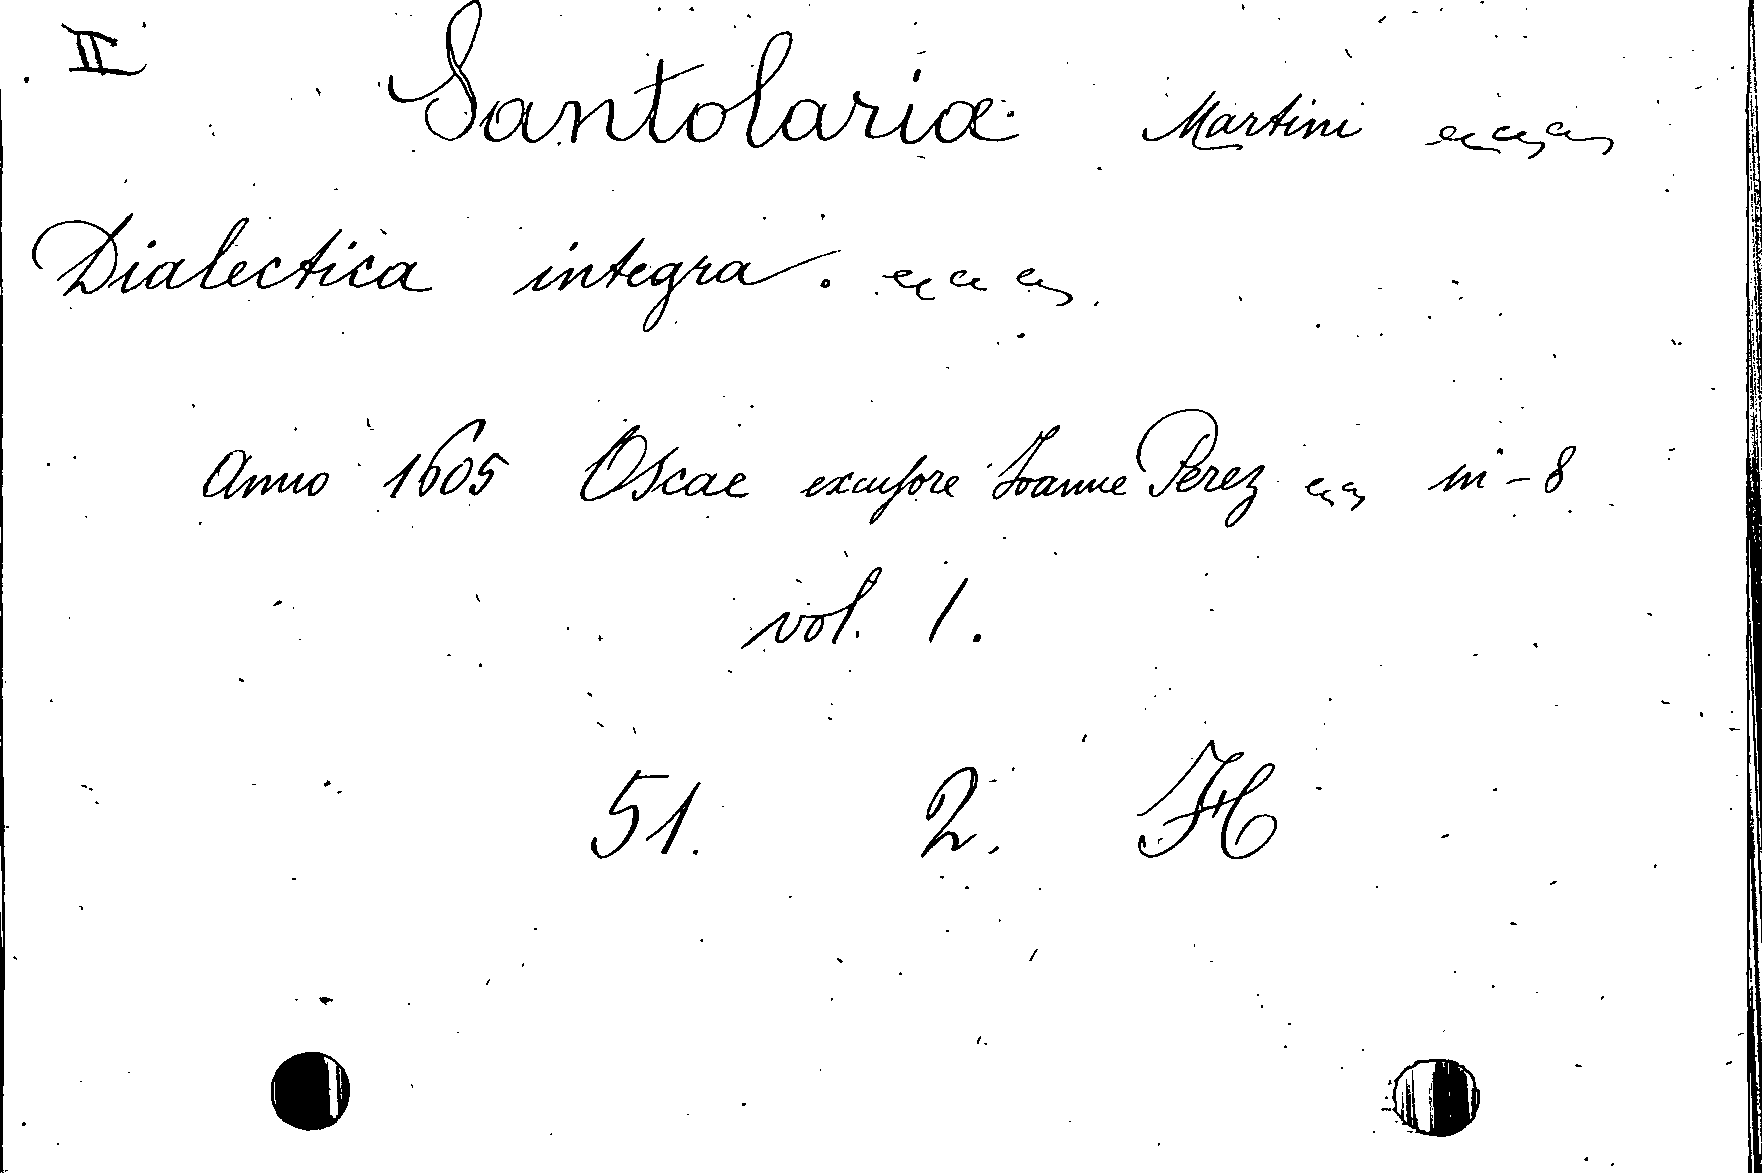 II Santolariæ Martini
Dialectica integra.
Anno 1605 Oscae excusore Ioanne Perez in-8
vol. 1.
51. 2. H